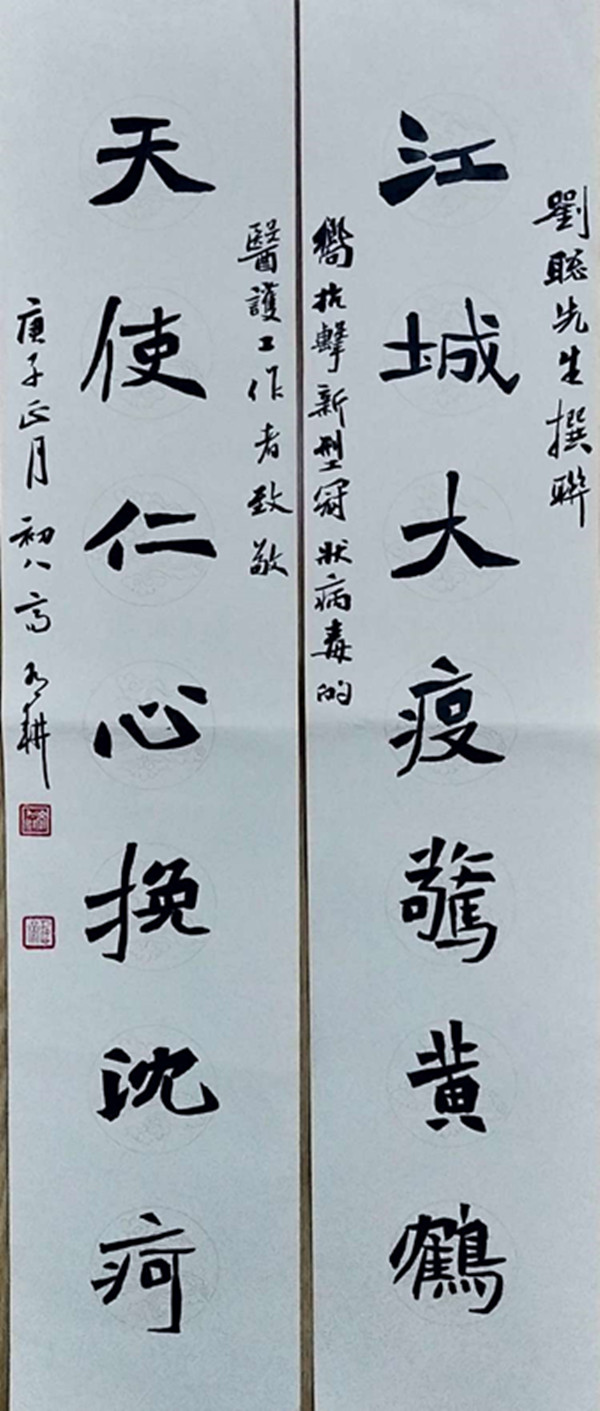 劉聰先生撰聯
江城大疫驚黃鶴
嚮抗擊新型冠狀病毒的
醫護工作者致敬
天使仁心挽沈疴
庚子正月初八高為耕